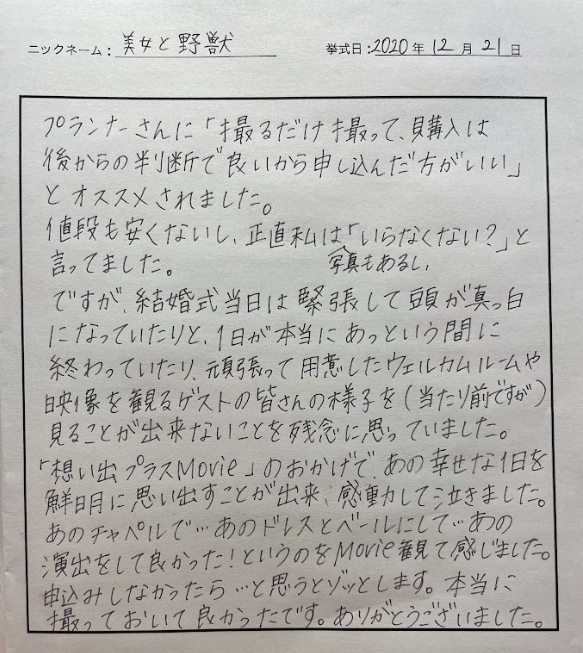 ニックネーム：美女と野獣 挙式日：2020年12月21日
プランナーさんに「撮るだけ撮って、購入は
後からの判断で良いから申し込んだ方がいい」
とオススメされました。
値段も安くないし、正直私は「いらなくない？」と
言ってました。
写真もあるし、
ですが、結婚式当日は緊張して頭が真っ白
になっていたりと、1日が本当にあっという間に
終わっていたり、頑張って用意したウェルカムルームや
映像を観るゲストの皆さんの様子を（当たり前ですが）
見ることが出来ないことを残念に思っていました。
「想い出プラスMovie」のおかげで、あの幸せな1日を
鮮明に思い出すことが出来、感動して泣きました。
あのチャペルで…あのドレスとベールにして…あの
演出をして良かった！というのをMovie観て感じました。
申込みしなかったら…と思うとゾッとします。本当に
撮っておいて良かったです。ありがとうございました。